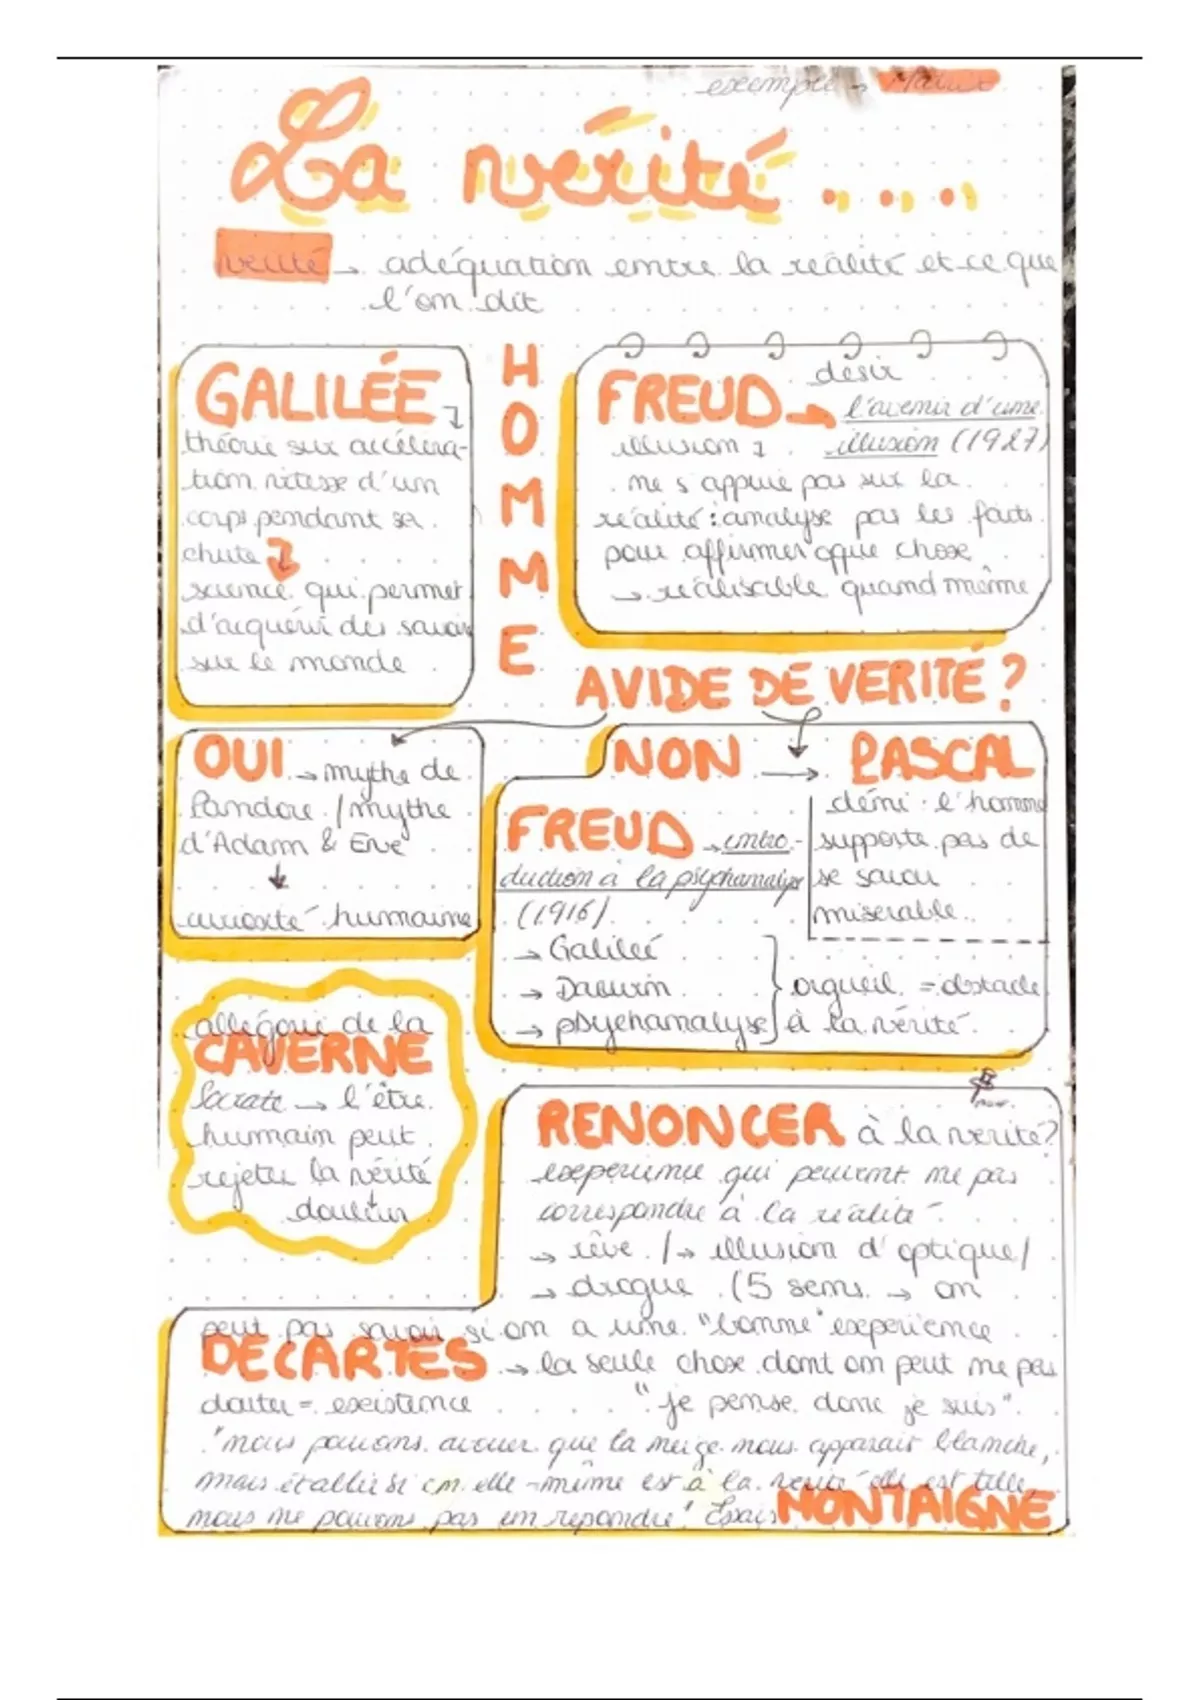 exemple → Matrix
La vérité ....
vérité → adéquation entre la réalité et ce que
l'on dit
GALILÉE
théorie sur accéléra-
tion vitesse d'un
corps pendant sa
chute
science qui permet
d'acquérir des savoirs
sur le monde
HOMME
FREUD → désir
l'avenir d'une
illusion illusion (1927)
ne s'appuie pas sur la
réalité : analyse pas les faits
pour affirmer qque chose
→ réalisable quand même
AVIDE DE VERITÉ ?
OUI → mythe de
Pandore / mythe
d'Adam & Eve
↓
curiosité humaine
NON → PASCAL
démi : l'homme
supporte pas de
se savoir
misérable.
FREUD → intro-
duction à la psychanalyse
(1916)
→ Galilée
→ Darwin
→ psychanalyse
orgueil = obstacle
à la vérité
allégorie de la
CAVERNE
Socrate → l'être
humain peut
rejeter la vérité
douleur
RENONCER à la vérité?
expérience qui peuvent ne pas
correspondre à la réalité
→ rêve / → illusion d'optique /
→ drogue (5 sens → on
peut pas savoir si on a une "bonne" expérience
DECARTES → la seule chose dont on peut ne pas
douter = existence "je pense donc je suis"
"nous pouvons avouer que la neige nous apparait blanche,
mais établir si en elle-même est à la vérité elle est telle,
nous ne pouvons pas en répondre" Essais MONTAIGNE